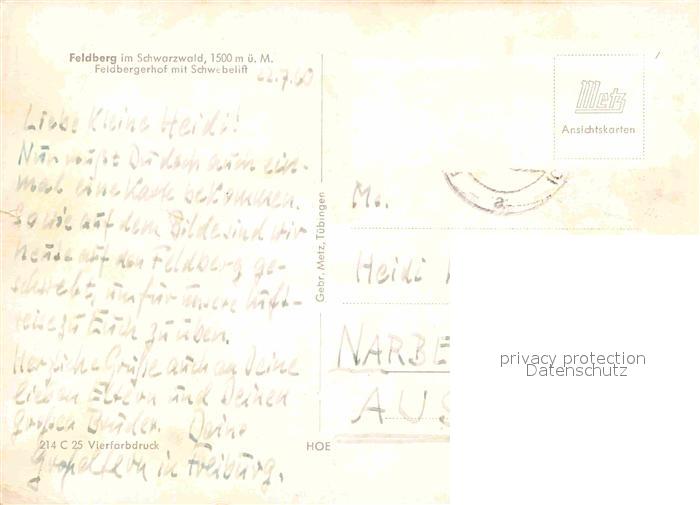 Feldberg im Schwarzwald, 1500 m ü. M.
Feldbergerhof mit Schwebelift
22.7.60
Liebe kleine Heidi!
Nun mußt Du doch auch ein-
mal eine Karte bekommen.
So wie auf dem Bilde sind wir
heute auf den Feldberg ge-
schwebt, um für unsere Luft-
reise zu Euch zu üben.
Herzliche Grüße auch an Deine
lieben Eltern und Deinen
großen Bruder. Deine
Großeltern in Freiburg.
214 C 25 Vierfarbdruck
HOE
Gebr. Metz, Tübingen
Metz
Ansichtskarten
a
Heidi
NARBE
AUS
privacy protection
Datenschutz